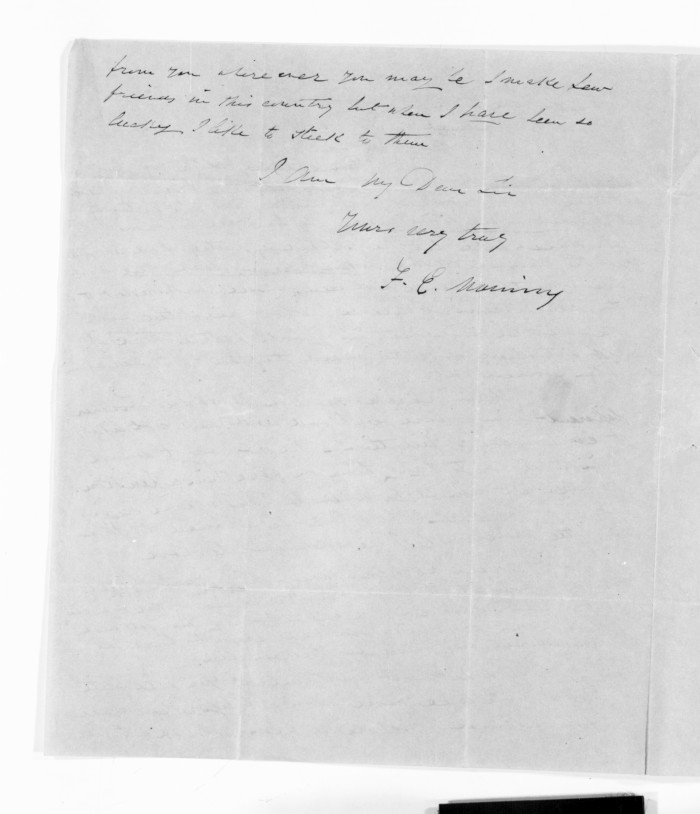 from you where ever you may be I make few
friends in this country but when I have been so
lucky I like to steek to them
I am My Dear Sir
Yours very truly
F. E. Maning